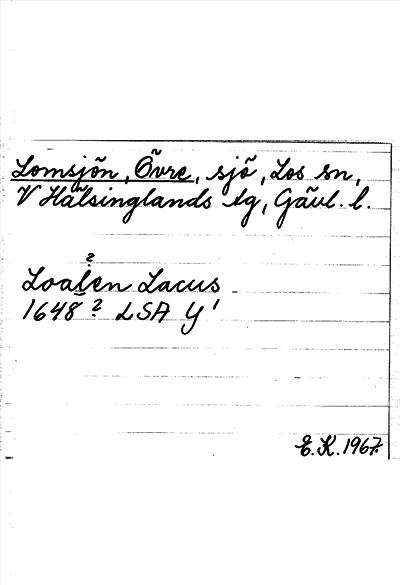 Lomsjön, Övre, sjö, Los sn,
V Hälsinglands tg, Gävl. l.
?
Loalen Lacus
1648 ? LSA Y 1
E.K. 1967.